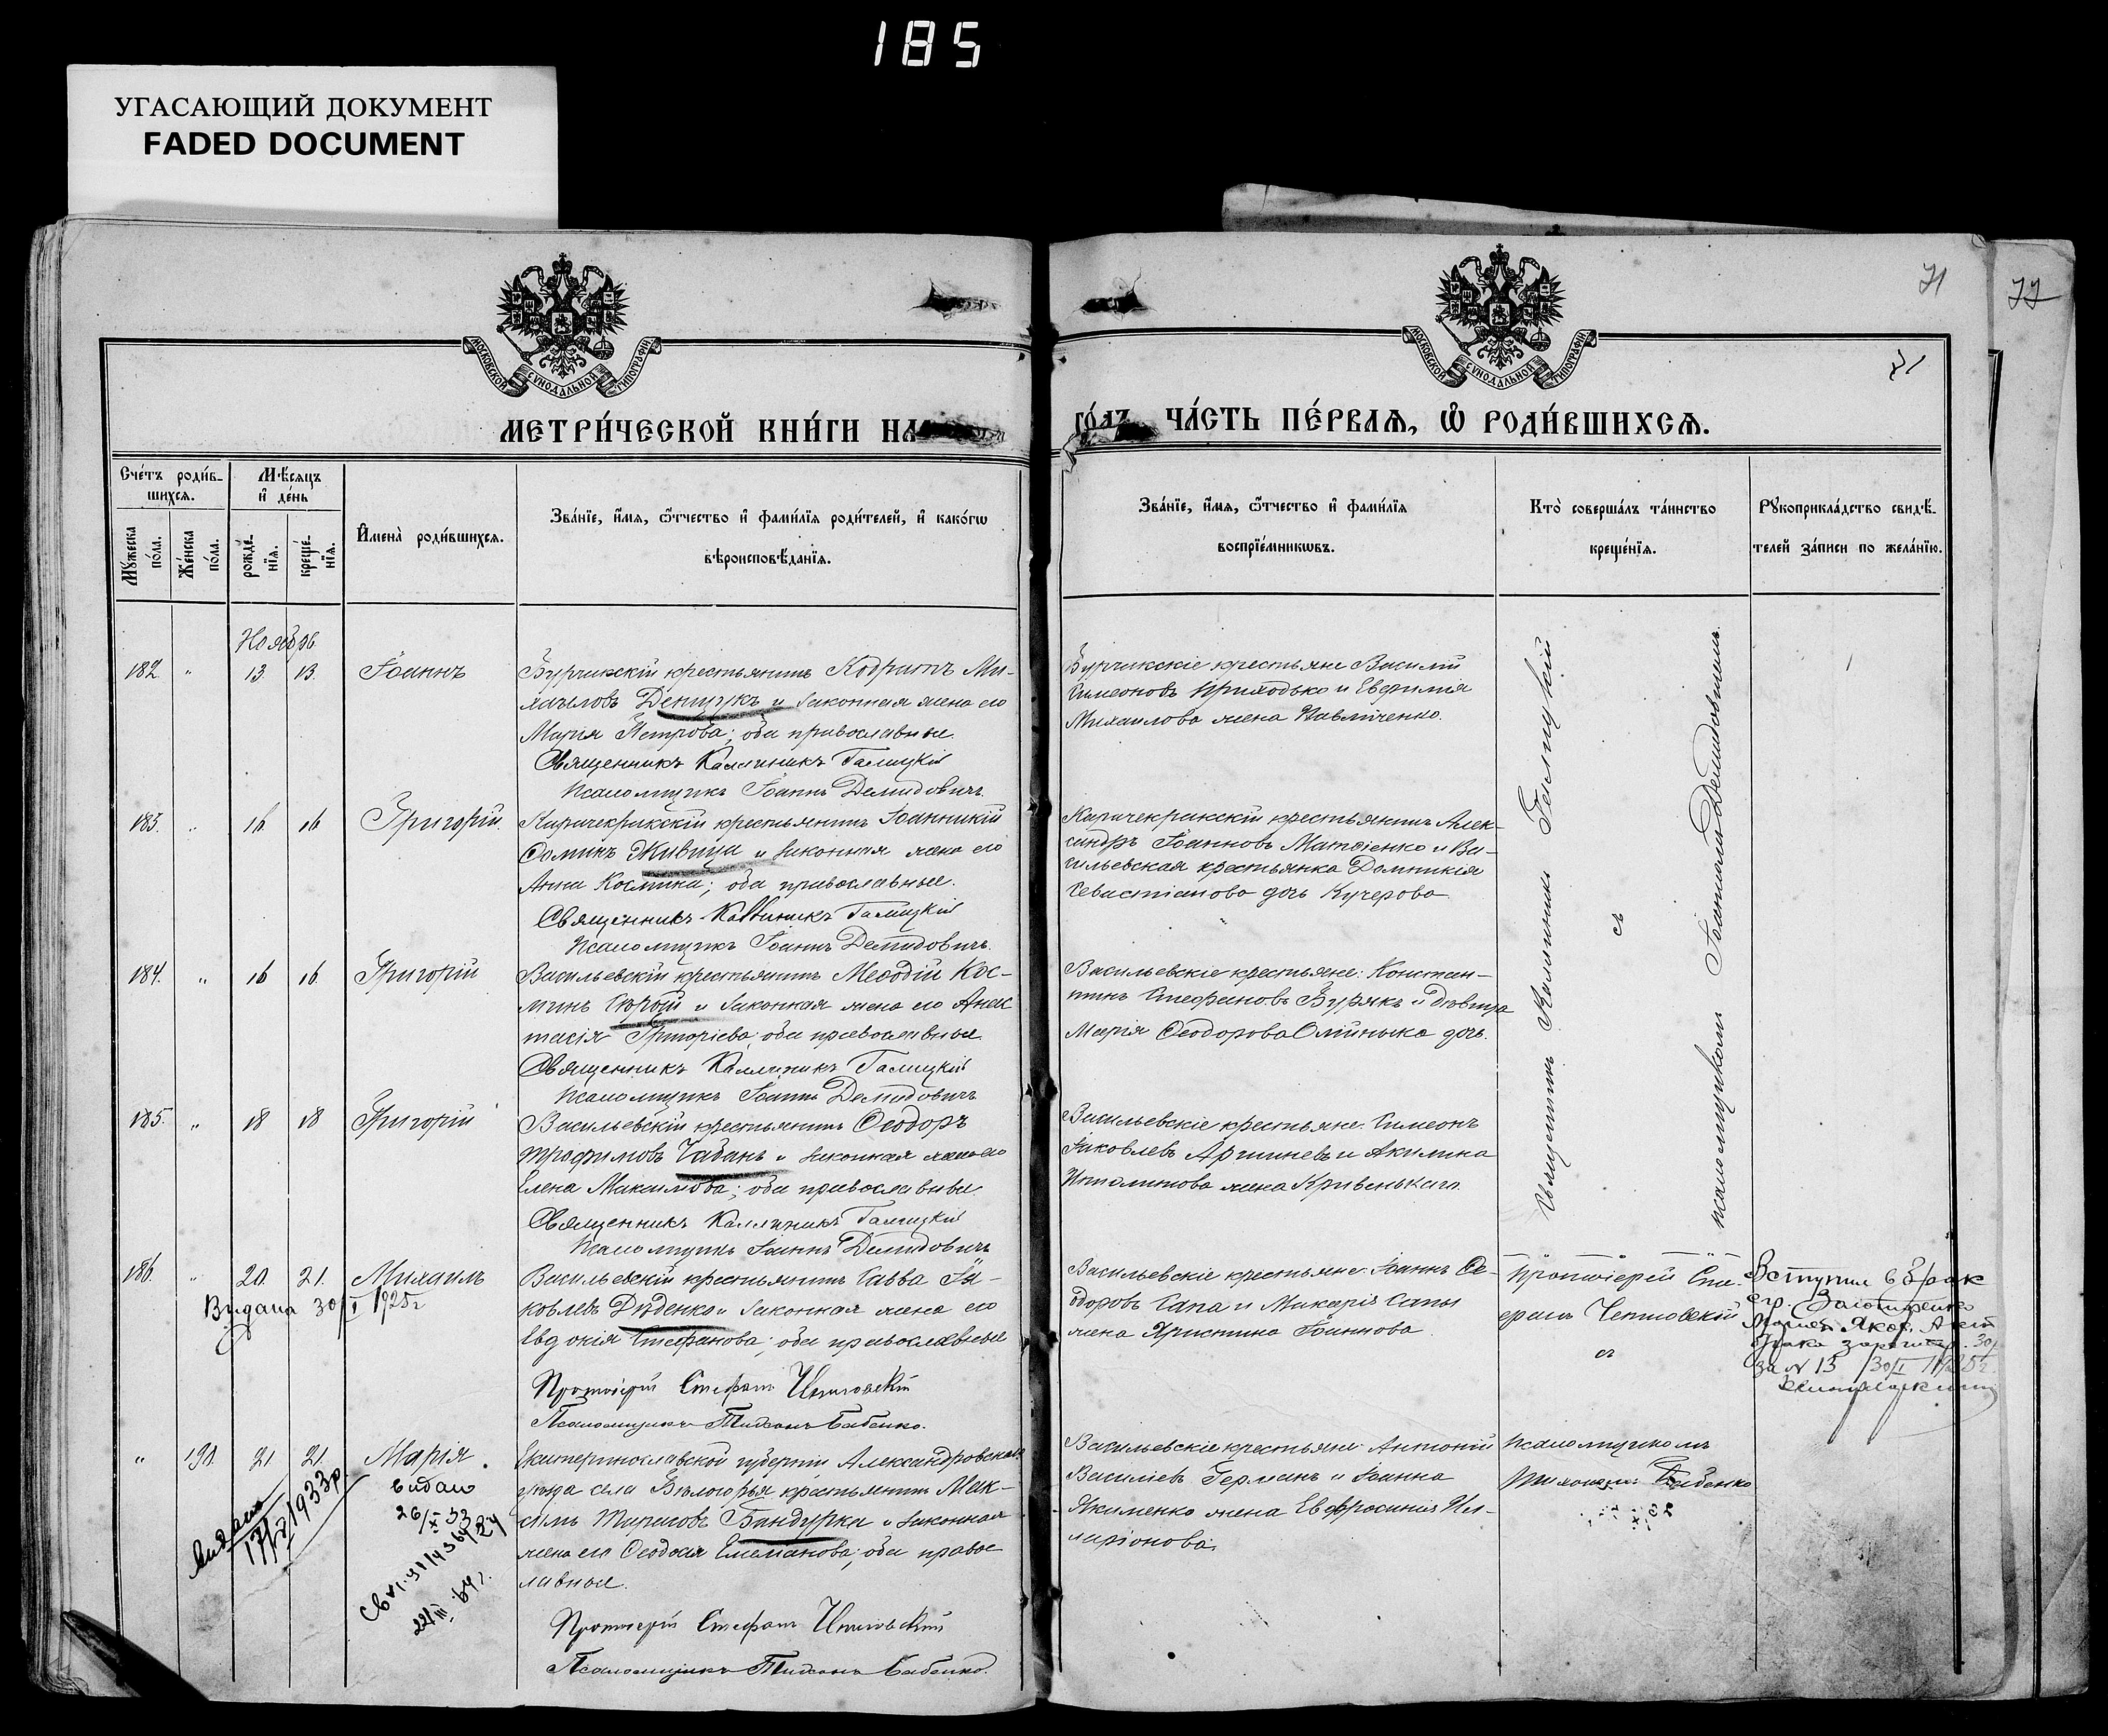 185
УГАСАЮЩИЙ ДОКУМЕНТ
FADED DOCUMENT
71
77
71
МОСКОВСКОЙ СУНОДАЛЬНОЙ ТИПОГРАФІИ
МОСКОВСКОЙ СУНОДАЛЬНОЙ ТИПОГРАФІИ
МЕТРИ́ЧЕСКОЙ КНИ́ГИ НА
ГО́ДЪ, ЧА́СТЬ ПЕ́РВАЯ, Ѿ РОДИ́ВШИХСЯ.
Сче́тъ роди́в-
шихся.
Мꙋ́жеска по́ла.
Же́нска по́ла.
Мѣ́сяцъ
и҆ де́нь
рожде́нїя.
креще́нїя.
И҆мена̀ роди́вшихся.
Зва́нїе, и҆́мя, ѻ҆́тчество и҆ фами́лїя роди́телей, и҆ како́гѡ
вѣроисповѣ́данїя.
Зва́нїе, и҆́мя, ѻ҆́тчество и҆ фами́лїя
воспрїе́мникѡвъ.
Кто̀ соверша́лъ та́инство
креще́нїя.
Рꙋкоприкла́дство свидѣ́-
телей за́писи по жела́нїю.
Ноябрь
182 " 13. 13. Іоаннъ
Бурчикскій крестьянинъ Кодратъ Ми-
хаиловъ Денщукъ и законная жена его
Марія Петрова; оба православные.
Священникъ Каллиникъ Галицкій
Псаломщикъ Іоаннъ Демидовичъ.
Бурчикскіе крестьяне Василій
Симеоновъ Приходько и Евфимія
Михаилова жена Павличенко.
183. " 16. 16 Григорій.
Карачекракскій крестьянинъ Іоанникій
Ѳоминъ Живица и законная жена его
Анна Космина; оба православные.
Священникъ Каллиникъ Галицкій
Псаломщикъ Іоаннъ Демидовичъ.
Карачекракскій крестьянинъ Алек-
сандръ Іоанновъ Матвіенко и Ва-
сильевская крестьянка Домникія
Севастіанова дочь Кучерова.
184. " 16 16. Григорій
Васильевскій крестьянинъ Меѳодій Кос-
минъ Сѣрый и законная жена его Анас
тасія Григоріева; оба православные
Священникъ Каллиникъ Галицкій
Псаломщикъ Іоаннъ Демидовичъ
Васильевскіе крестьяне: Констан-
тинъ Стефановъ Бурякъ и дѣвица
Марія Ѳеодорова Олійныка дочь.
185. " 18 18 Григорій
Васильевскій крестьянинъ Ѳеодоръ
Трофимовъ Чабанъ и законная жена его
Елена Максимова; оба православные.
Священникъ Каллиникъ Галицкій
Псаломщикъ Іоаннъ Демидовичъ
Васильевскіе крестьяне: Симеонъ
Іаковлевъ Аршиневъ и Акилина
жена Кривенькаго.
Священникъ Каллиникъ Галицкій
съ
псаломщикомъ Іоанномъ Демидовичемъ.
186. " 20. 21. Михаилъ
Видана 30/I 1925 г
Васильевскій крестьянинъ Савва Іа-
ковлевъ Диденко и законная жена его
Евдокія Стефанова; оба православные
Протоіерей Стефанъ
Псаломщикъ Тихонъ Бабенко.
Васильевскіе крестьяне: Іоаннъ Ѳе-
одоровъ Сапа и Макарія Сапы
жена Христина Іоаннова
Протоіерей Сте-
фанъ
съ
Вступил в брак
с гр.
Яков. Акт
брака зарегистр. 30/
за № 13 30/I 1925 г.
" 130. 21 21. Марія.
Екатеринославской губерніи Александровскаго
уѣзда села Бѣлогорья крестьянинъ Мак-
симъ Бандурка и законная
жена его Ѳеодосія Емеліанова; оба правос
лавные.
Протоіерей Стефанъ
Псаломщикъ Тихонъ Бабенко.
Васильевскіе крестьяне: Антоній
Василіевъ Германъ и Іоанна
Якименко жена Евфросинія Ил-
ларіонова.
псаломщикомъ
Тихономъ Бабенко
видано
17/VII 1933 р.
видано
26/X 33
22/III 64 г.